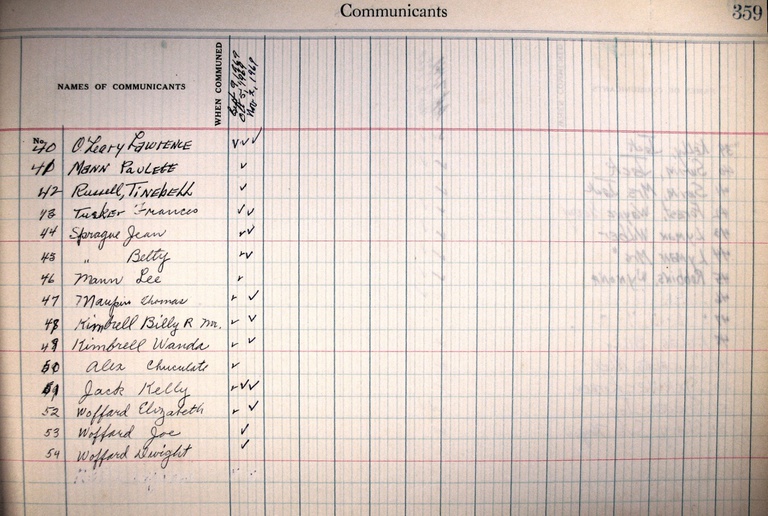 Communicants
359
NAMES OF COMMUNICANTS
WHEN COMMUNED
Sept 7, 1969
Oct 5, 1969
Nov 2, 1969
No.
40 O'Leary Lawrence ✓ ✓ ✓
41 Mann Paulette ✓
42 Russell, Tinebell ✓
43 Tucker Frances ✓ ✓
44 Sprague Jean ✓ ✓
45 " Betty ✓ ✓
46 Mann Lee ✓
47 Maupin Thomas ✓ ✓
48 Kimbrell Billy R M. ✓ ✓
49 Kimbrell Wanda ✓ ✓
50 Alex Chuculate ✓
51 Jack Kelly ✓ ✓ ✓
52 Woffard Elizabeth ✓ ✓
53 Woffard Joe ✓
54 Woffard Dwight ✓